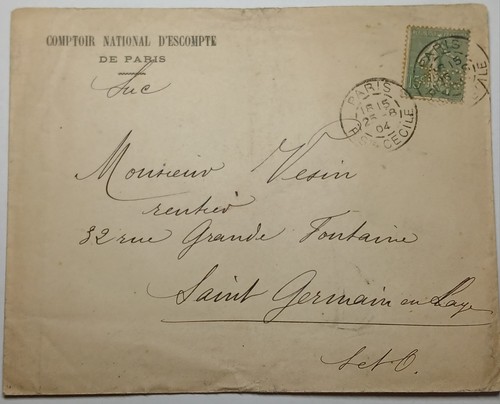 COMPTOIR NATIONAL D'ESCOMPTE
DE PARIS
Suc
Monsieur Vesin
rentier
32 rue Grande Fontaine
Saint Germain en Laye
S et O.
PARIS
15
04
R. Ste CECILE
PARIS
15